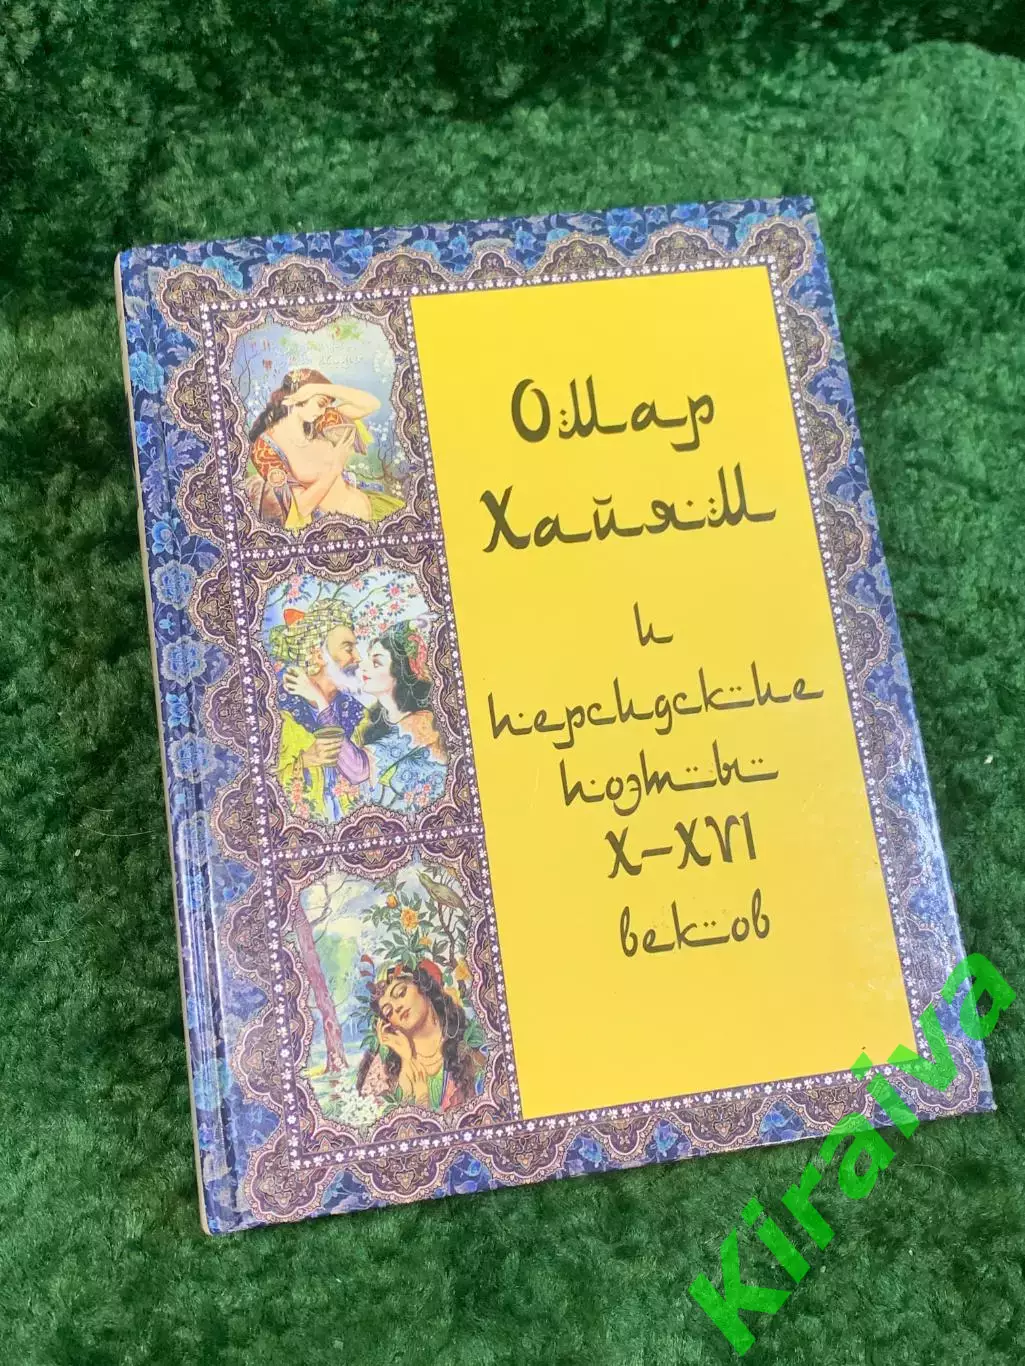 Омар
Хайям
и
персидские
поэты
X–XVI
веков
Kiraiva